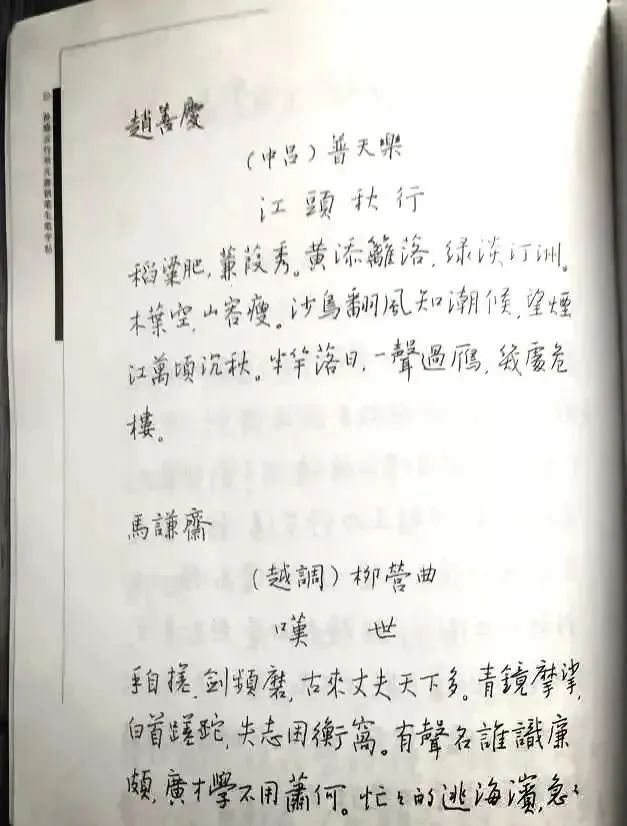 趙善慶
（中吕）普天樂
江頭秋行
稻粱肥，蒹葭秀。黄添籬落，绿淡汀洲。
木葉空，山容瘦。沙鸟翻风知潮候，望煙
江萬頃沉秋。半竿落日，一聲過鴈，幾處危
樓。
馬謙齋
（越調）柳營曲
嘆世
手自搓，剑頻磨，古來丈夫天下多。青鏡摩挲，
白首蹉跎，失志困衡窩。有聲名誰識廉
頗，廣才學不用蕭何。忙々的逃海濱，急々